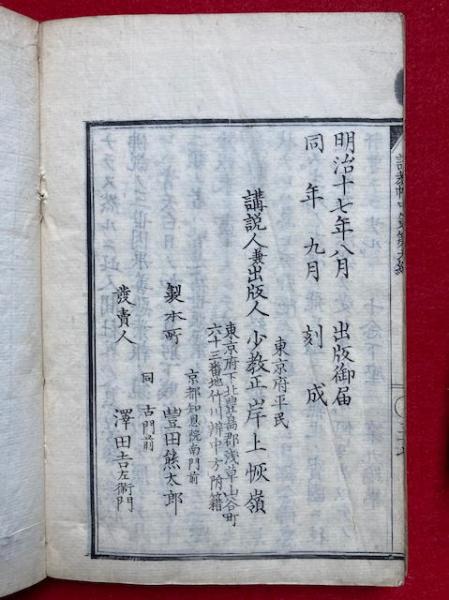 明治十七年八月 出版御届
同年九月 刻成
東京府平民
講説人兼出版人 少教正 岸上恢嶺
東京府下北豊島郡浅草山谷町
六十三番地竹川辨中方附籍
京都知恩院南門前
製本町 豊田熊太郎
同 古門前
發賣人 澤田吉左衛門